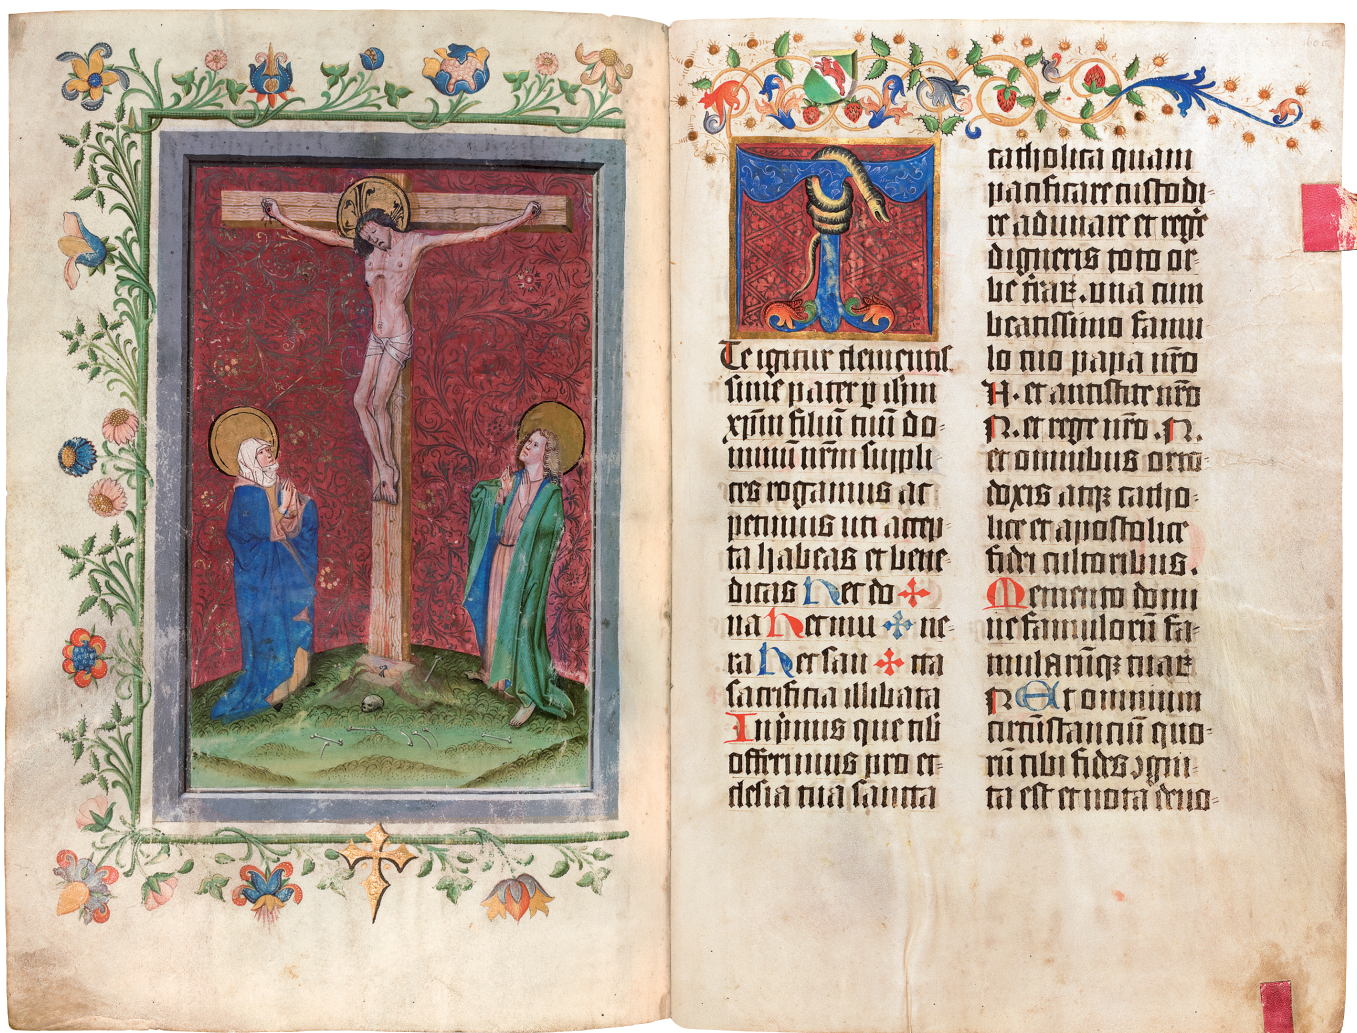 Te igitur clementis
sime pater p ihm
xpm filiū tuū do-
minū nrm suppli
ces rogamus ac
petimus uti accep
ta habeas et bene-
dicas Hec do ✠
na Hec mu ✠ ne-
ra Hec san ✠ cta
sacrificia illibata
Inprimis que tibi
offerimus pro ec-
clesia tua sancta
catholica quam
pacificare custodi-
re adunare et rege
digneris toto or-
be trar. una cum
beatissimo famu
lo tuo papa nro
N. et antistite nro
N. et rege nro .N.
et omnibus orto-
doxis atqꝫ catho-
lice et apostolice
fidei cultoribus.
Memento domi
ne famulorū fa-
mularūqꝫ tuar
N Et omnium
circūstanciū quo-
rū tibi fides ꝯgni-
ta est et nota deuo-